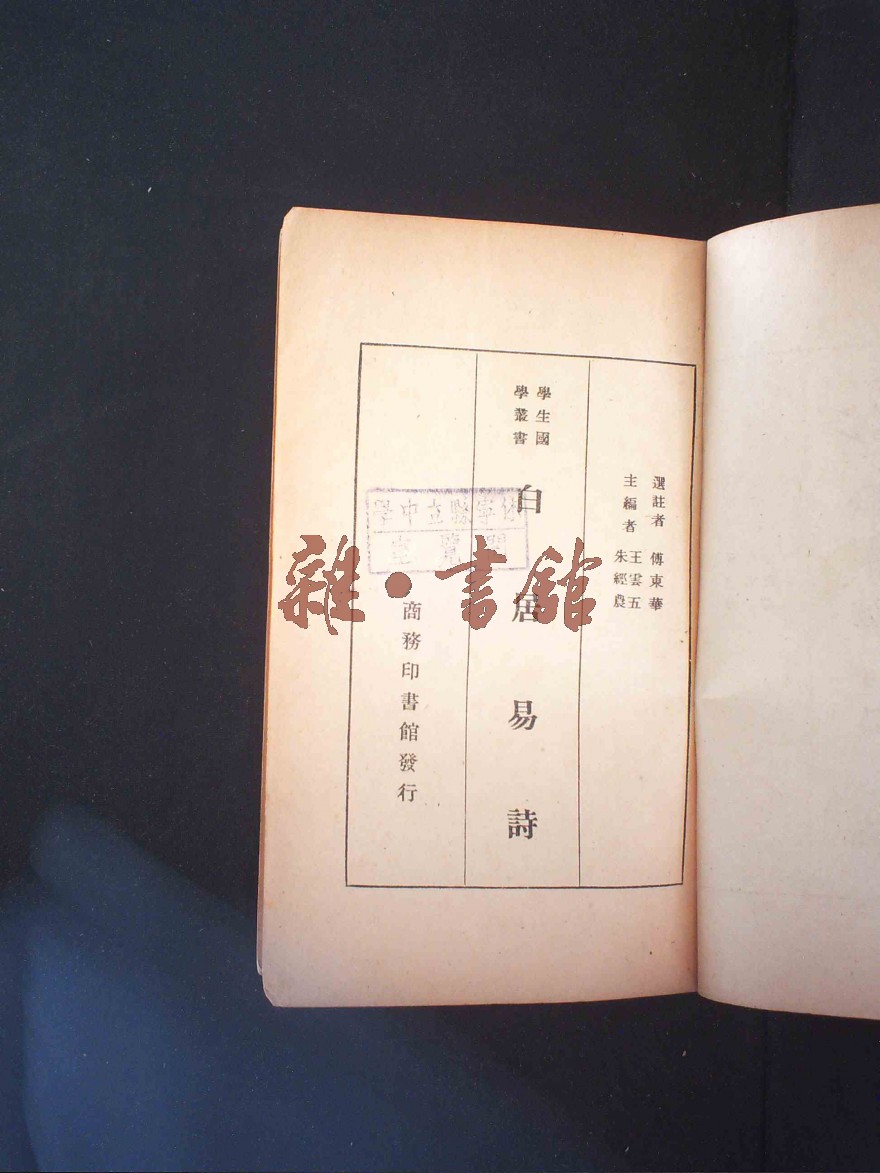 選註者 傅東華
主編者 王雲五
朱經農
學生國
學叢書
白居易詩
商務印書館發行
縣立中學
覽室
雜·書館